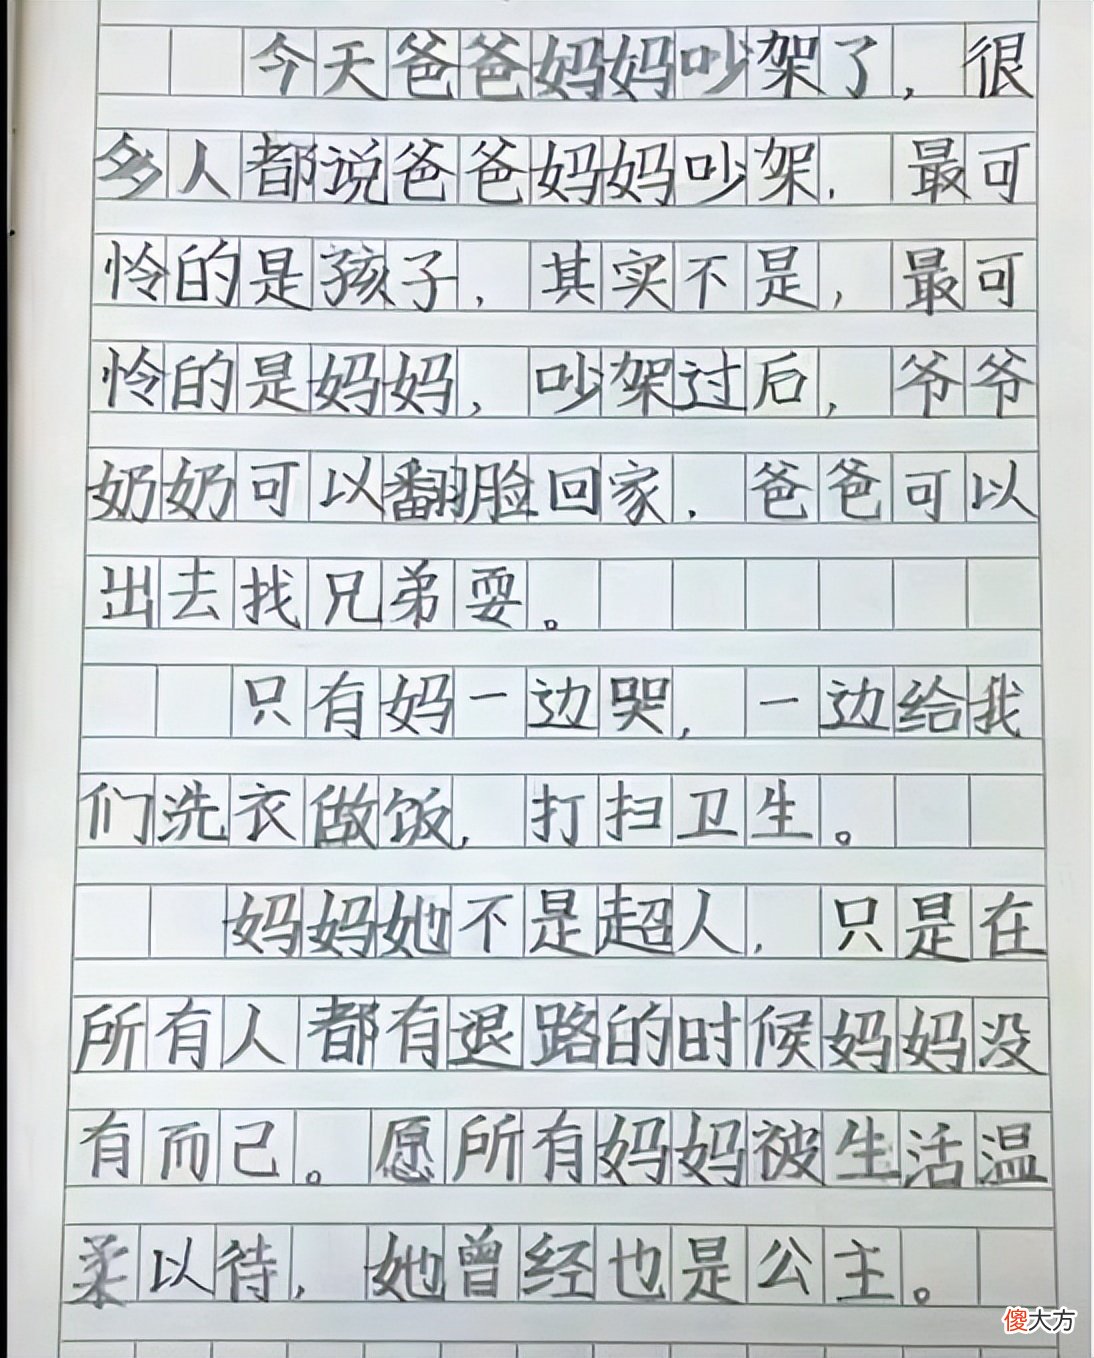 今天爸爸妈妈吵架了，很
多人都说爸爸妈妈吵架，最可
怜的是孩子，其实不是，最可
怜的是妈妈，吵架过后，爷爷
奶奶可以翻脸回家，爸爸可以
出去找兄弟耍。
只有妈一边哭，一边给我
们洗衣做饭，打扫卫生。
妈妈她不是超人，只是在
所有人都有退路的时候妈妈没
有而己。愿所有妈妈被生活温
柔以待，她曾经也是公主。
傻大方